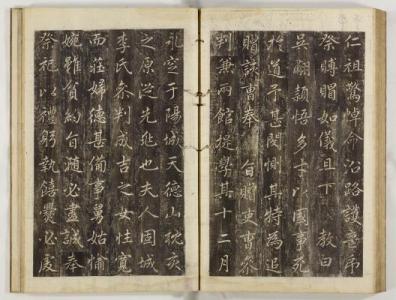 仁祖驚悼命沿路護喪弔
祭賻賵如儀且下 教曰
吳穎悟多士以國事死
於道予甚閔惻其特爲追
贈曹 自贈吏曹參
判兼兩館提學其十二月
窆于陽城天德山枕亥
之原從先兆也夫人固城
李氏參判成吉之女性寬
而莊婦德甚備事舅姑愉
婉雖貧約自隨必盡誠奉
祭祀以禮躬執饎爨必虔